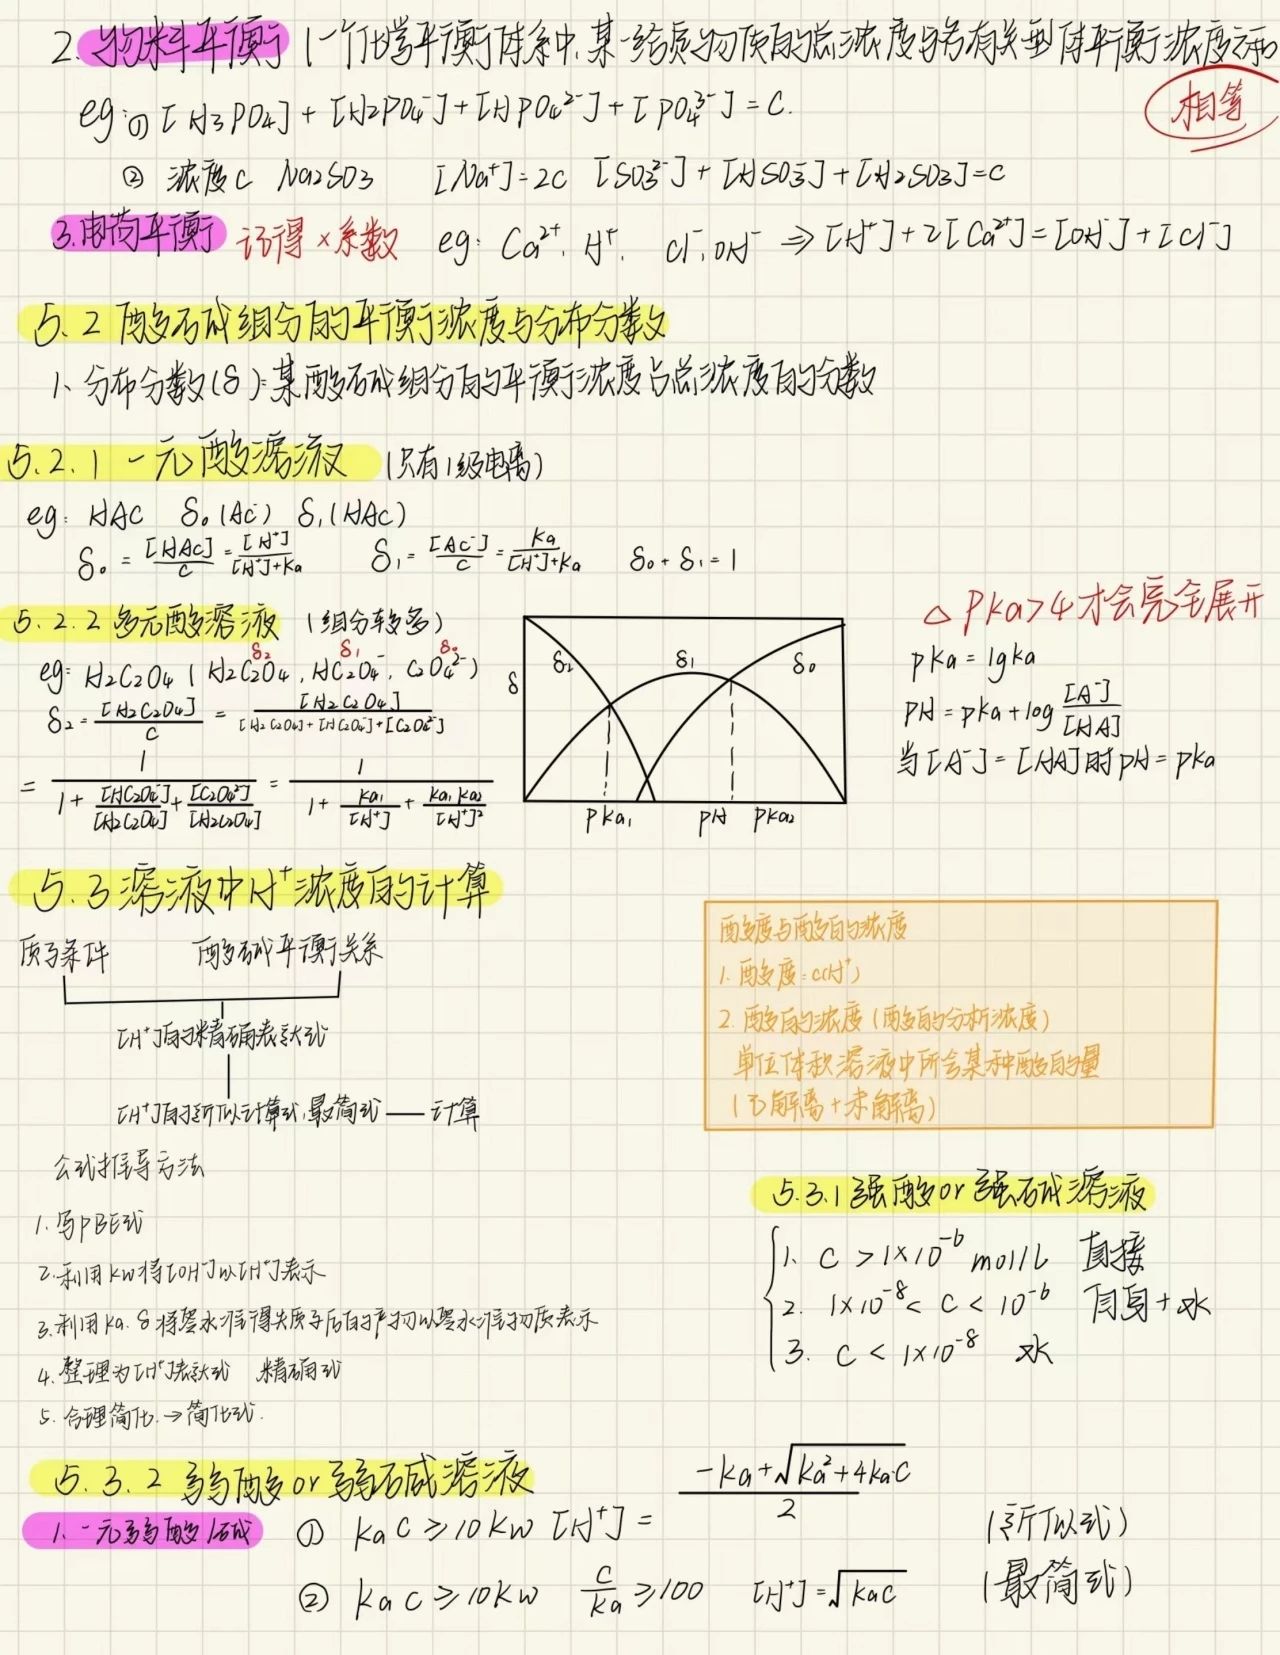 2. 物料平衡 (一个化学平衡体系中,某一给定物质的总浓度与各有关型体平衡浓度之和
相等
eg:① [H₃PO₄] + [H₂PO₄⁻] + [HPO₄²⁻] + [PO₄³⁻] = C.
② 浓度C Na₂SO₃ [Na⁺]=2C [SO₃²⁻] + [HSO₃⁻] + [H₂SO₃]=C
3.电荷平衡 记得×系数 eg: Ca²⁺, H⁺, Cl⁻, OH⁻ ⇒ [H⁺]+2[Ca²⁺]=[OH⁻]+[Cl⁻]
5.2 酸碱组分的平衡浓度与分布分数
1、分布分数(δ):某酸碱组分的平衡浓度占总浓度的分数
5.2.1 一元酸溶液 (只有1级电离)
eg: HAC δ₀(AC⁻) δ₁(HAC)
δ₀ = [HAC]/C = [H⁺]/([H⁺]+Ka) δ₁ = [AC⁻]/C = Ka/([H⁺]+Ka) δ₀+δ₁=1
5.2.2 多元酸溶液 (组分较多)
δ₂ δ₁ δ₀
eg: H₂C₂O₄ (H₂C₂O₄, HC₂O₄⁻, C₂O₄²⁻)
δ₂ = [H₂C₂O₄]/C = [H₂C₂O₄]/([H₂C₂O₄]+[HC₂O₄⁻]+[C₂O₄²⁻])
= 1/(1+[HC₂O₄⁻]/[H₂C₂O₄]+[C₂O₄²⁻]/[H₂C₂O₄]) = 1/(1+Ka₁/[H⁺]+Ka₁Ka₂/[H⁺]²)
δ δ₂ δ₁ δ₀
pKa₁ pH pKa₂
△ PKa>4才会完全展开
pKa = lgKa
PH = pKa+log [A⁻]/[HA]
当[A⁻]=[HA]时pH=pKa
5.3 溶液中H⁺浓度的计算
质子条件 酸碱平衡关系
[H⁺]的精确表达式
[H⁺]的近似计算式,最简式——计算
酸度与酸的浓度
1. 酸度:c(H⁺)
2. 酸的浓度(酸的分析浓度)
单位体积溶液中所含某种酸的量
(已解离+未解离)
公式推导方法
1. 写PBE式
2. 利用Kw将[OH⁻]以[H⁺]表示
3. 利用Ka.δ将零水准得失质子后的产物以零水准物质表示
4. 整理为[H⁺]表达式 精确式
5. 合理简化.→简化式.
5.3.1强酸or强碱溶液
1. C >1×10⁻⁶ mol/L 直接
2. 1×10⁻⁸< C < 10⁻⁶ 自身+水
3. C < 1×10⁻⁸ 水
5.3.2 弱酸or弱碱溶液
1. 一元弱酸/碱 ① KaC ≥10Kw [H⁺]= (-Ka+√(Ka²+4KaC))/2 (近似式)
② KaC ≥10Kw C/Ka ≥100 [H⁺]=√KaC (最简式)